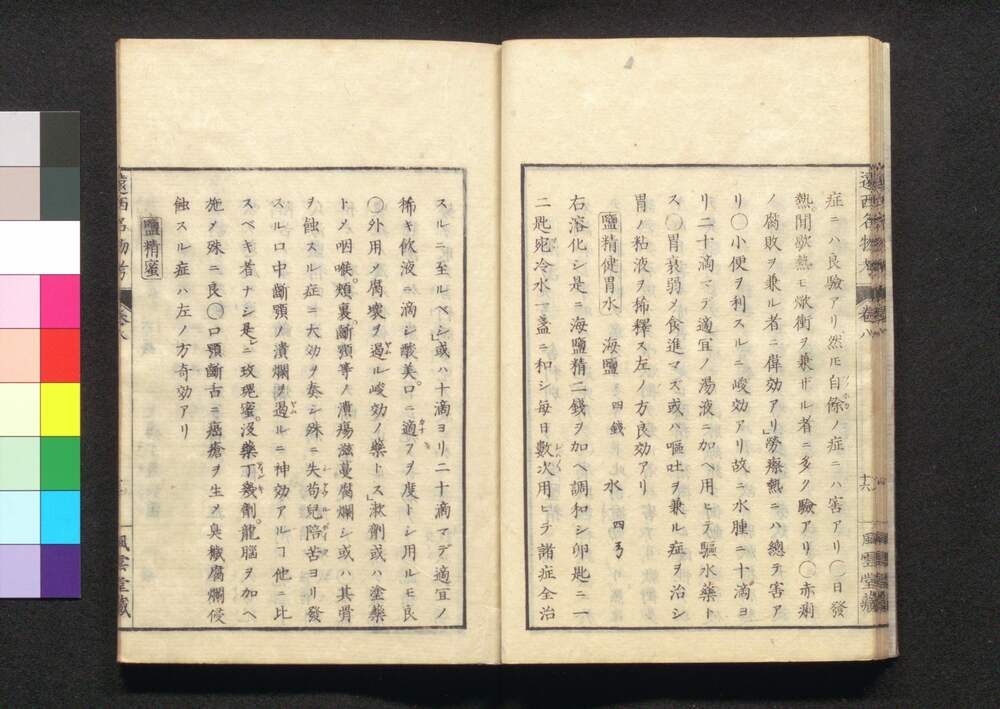 症ニハ良驗アリ然モ自餘ノ症ニハ害アリ○日發
熱。聞歇熱モ焮衝ヲ兼ザル者ニ多ク驗アリ○赤痢
ノ腐敗ヲ兼ル者ニ偉効アリ」勞瘵熱ニハ總テ害ア
リ○小便ヲ利スルニ峻効アリ故ニ水腫ニ十滴ヨ
リ二十滴マデ適宜ノ湯液ニ加ヘ用ヒテ驅水藥ト
ス○胃衰弱〆食進マズ或ハ嘔吐ヲ兼ル症ヲ治シ
胃ノ粘液ヲ稀釋ス左ノ方良効アリ
鹽精健胃水 海鹽 四錢 水 四弓
右溶化シ是ニ海鹽精二錢ヲ加ヘ調和シ卯匙ニ一
二匙宛冷水一盞ニ和シ每日數次用ヒテ諸症全治
遠西名物考 卷八 十六 風雲堂藏
スルニ至ルベシ」或ハ十滴ヨリ二十滴マデ適宜ノ
稀キ飮液ニ滴シ酸美。口ニ適フヲ度トシ用ルモ良
○外用〆腐壞ヲ遏ル峻効ノ藥トス」漱劑或ハ塗藥
ト〆咽喉。頰裏齗顎等ノ潰瘍滋蔓腐爛シ或ハ其骨
ヲ蝕スル症ニ大効ヲ奏シ殊ニ失苟兒陪苦ヨリ發
スル口中齗顎ノ潰爛ヲ遏ルニ神効アルヿ他ニ比
スベキ者ナシ是ニ玫瑰蜜。沒藥丁幾劑。龍腦ヲ加ヘ
施〆殊ニ良○口顎齗舌ニ癌瘡ヲ生〆臭檅腐爛侵
蝕スル症ハ左ノ方奇効アリ
鹽精蜜
遠西名物考 卷八 風雲堂藏